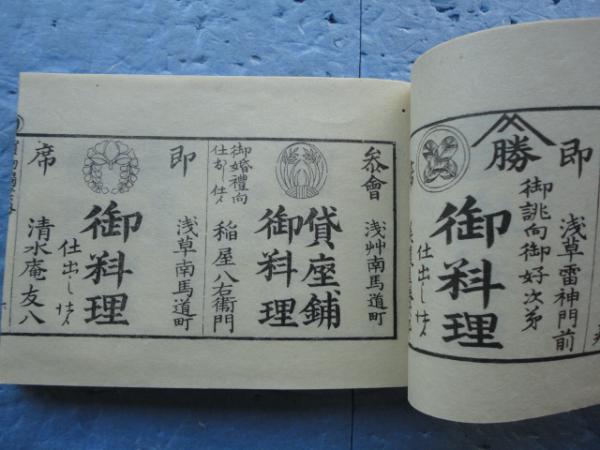 即
浅草雷神門前
勝
御誂向御好次第
御料理
仕出し仕候
参會
浅艸南馬道町
貸座鋪
御料理
御婚禮向
仕出し仕候
稲屋八右衛門
即
浅草南馬道町
御料理
仕出し仕候
席
清水庵友八